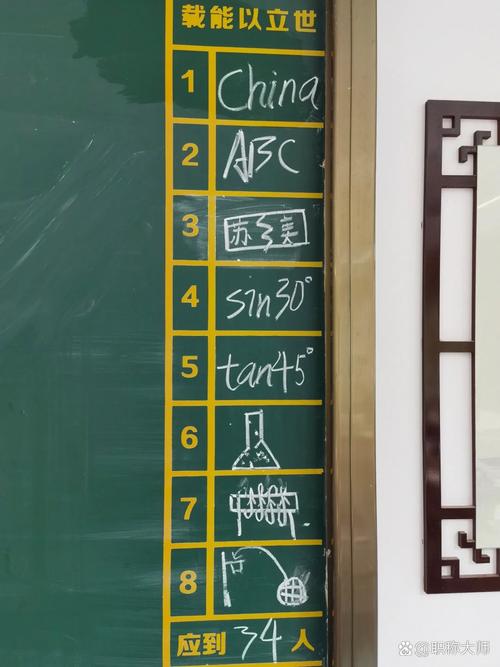 载能以立世
1 China
2 ABC
3 苏 美
4 sin30°
5 tan45°
6
7
8
应到 34 人
@职称大师